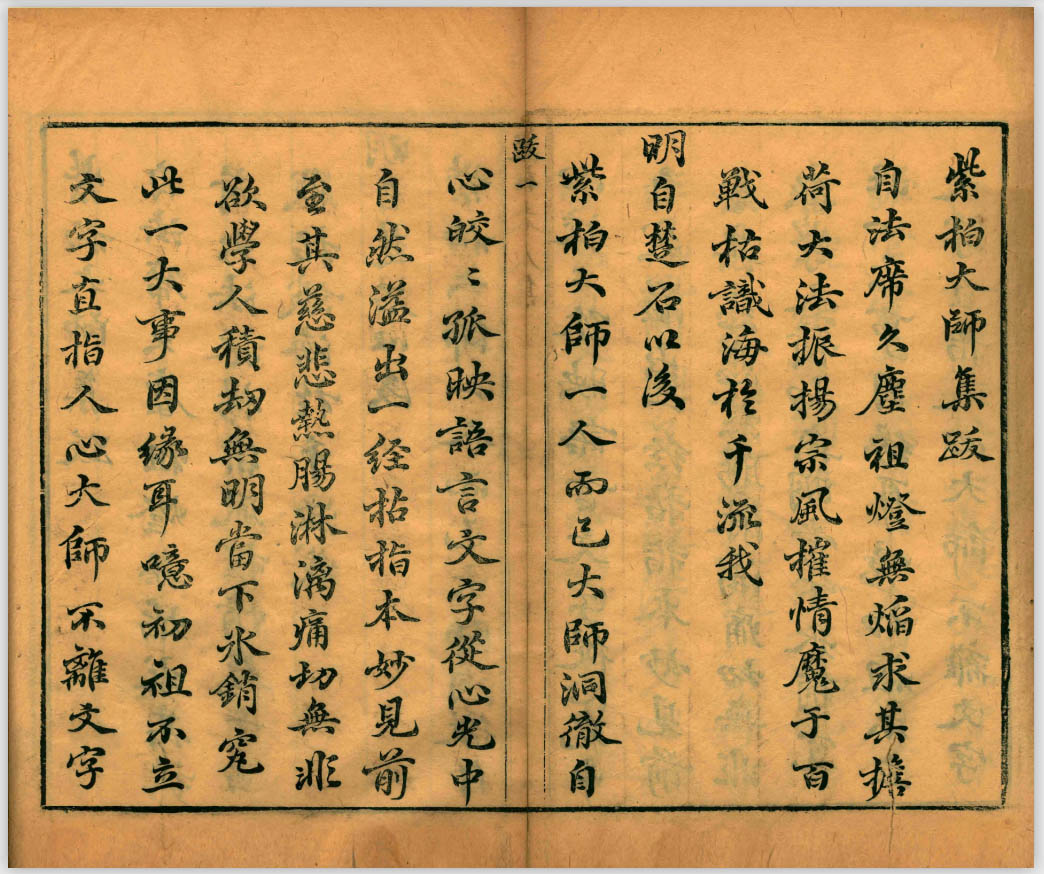 紫柏大師集跋
自法席久塵祖燈無焰求其擔
荷大法振揚宗風摧情魔于百
戰枯識海於千流我
明自楚石以後
紫柏大師一人而已大師洞徹自
跋一
心皎〻孤映語言文字從心光中
自然溢出一經拈指本妙見前
至其慈悲熱腸淋漓痛切無非
欲學人積劫無明當下氷銷究
此一大事因緣耳噫初祖不立
文字直指人心大師不離文字